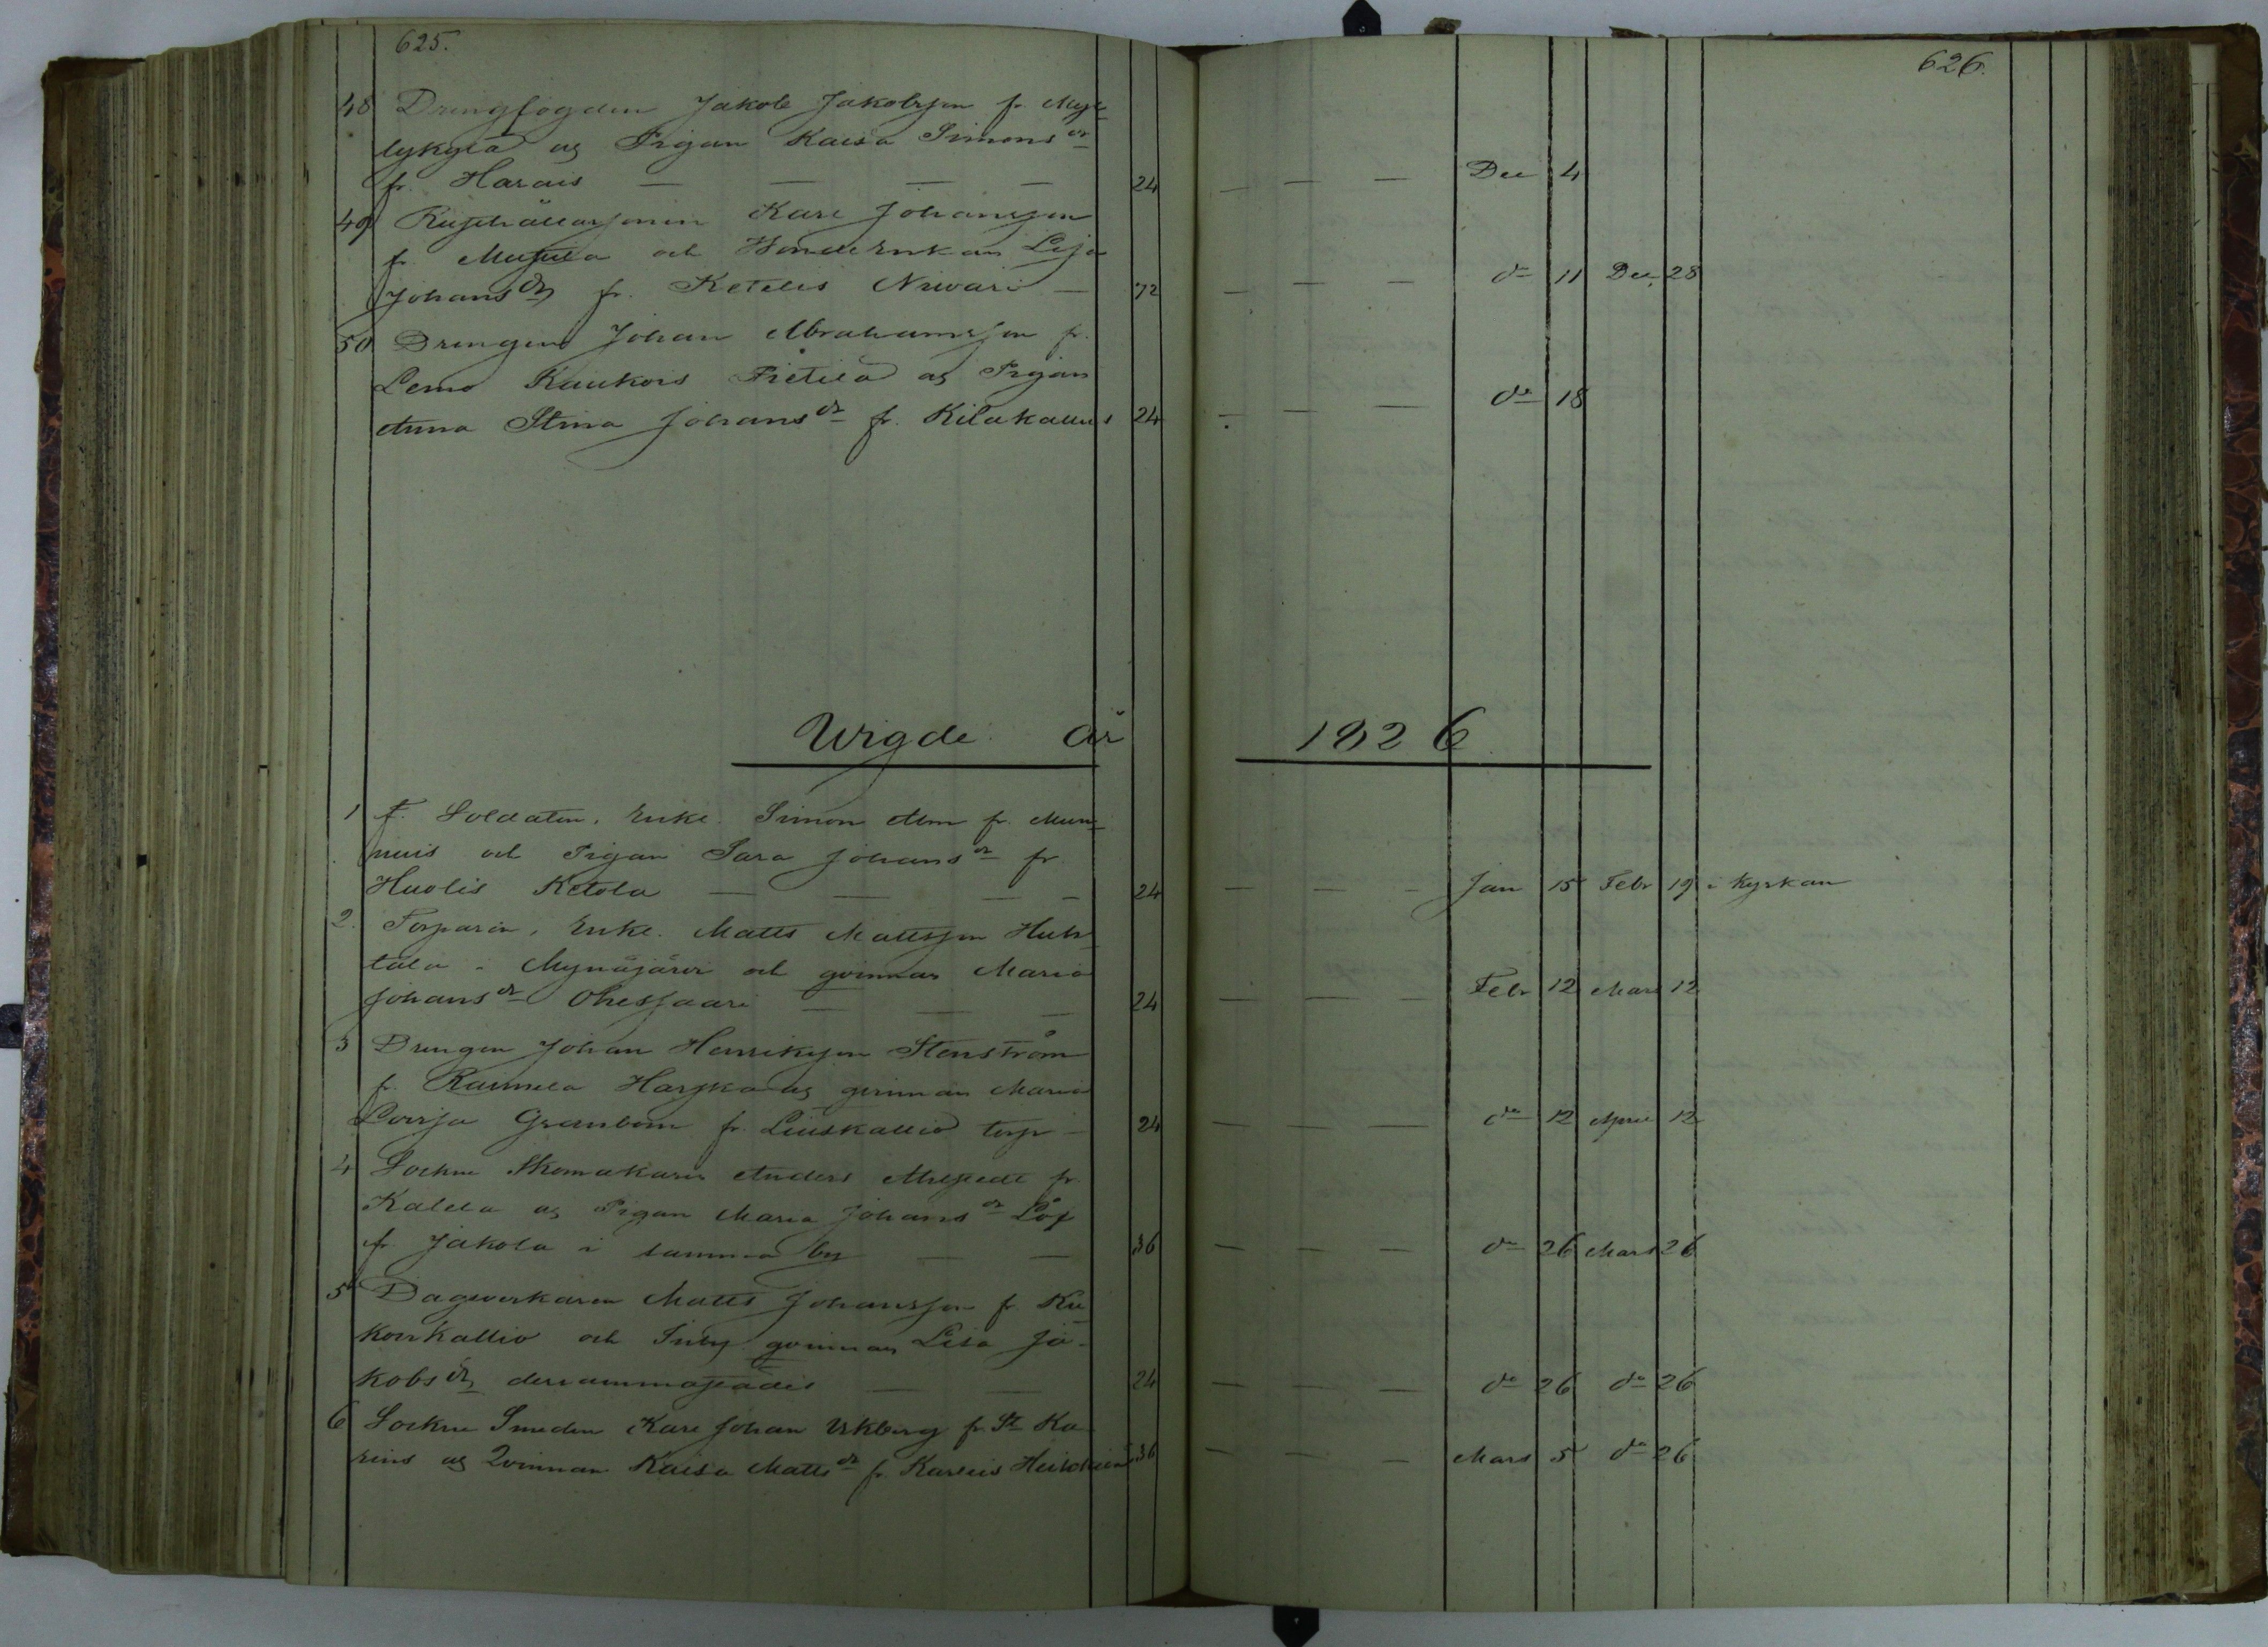 625.
626.
48 Drengfogden Jakob Jakobsson fr. Myl-
lykylä og Pigan Kaisa Simonsdr
fr. Harais — — — — 24 — — — Dec 4
49 Rusthållarsonen Karl Johansson
fr. och Bondeenkan Lisa
Johansdr fr. Ketelis Niuvari — 72 — — — do 11 Dec. 28
50 Drengen Johan Abrahamsson fr.
Lemo Kuukois Pietilä og Pigan
Anna Stina Johansdr fr. Kilakallus 24 — — — do 18
Wigde år 1826
1 f. Soldaten, Enkl. Simon Alm fr. Mun-
nuis och Pigan Sara Johansdr fr.
Huolis Ketola — — — — 24 — — — Jan 15 Febr 19 i Kyrkan
2. Torparen, Enkl. Matts Mattsson Huh-
tala i Mynäjärvi och qvinnan Maria
Johansdr Ohesaari — — — 24 — — — Febr 12 Mars 12
3 Drengen Johan Henriksson Stenström
fr. Raimela og qvinnan Maria
Lovisa Granbom fr. Liuskallio torp — 24 — — — do 12 April 12
4 Sockne Skomakaren Anders fr.
Kallela og Pigan Maria Johansdr Löf
fr. Jakola i samma by — — 36 — — — do 26 Mars 26
5 Dagsverkaren Matts Johansson fr. Ku-
konkallio och Inhy. qvinnan Lisa Ja-
kobsdr dersammastädes — — 24 — — — do 26 do 26
6 Sockne Smeden Karl Johan Ekberg fr. St Ka-
rins og Qvinnan Kaisa Mattsdr fr. Karleis 36 — — — Mars 5 do 26